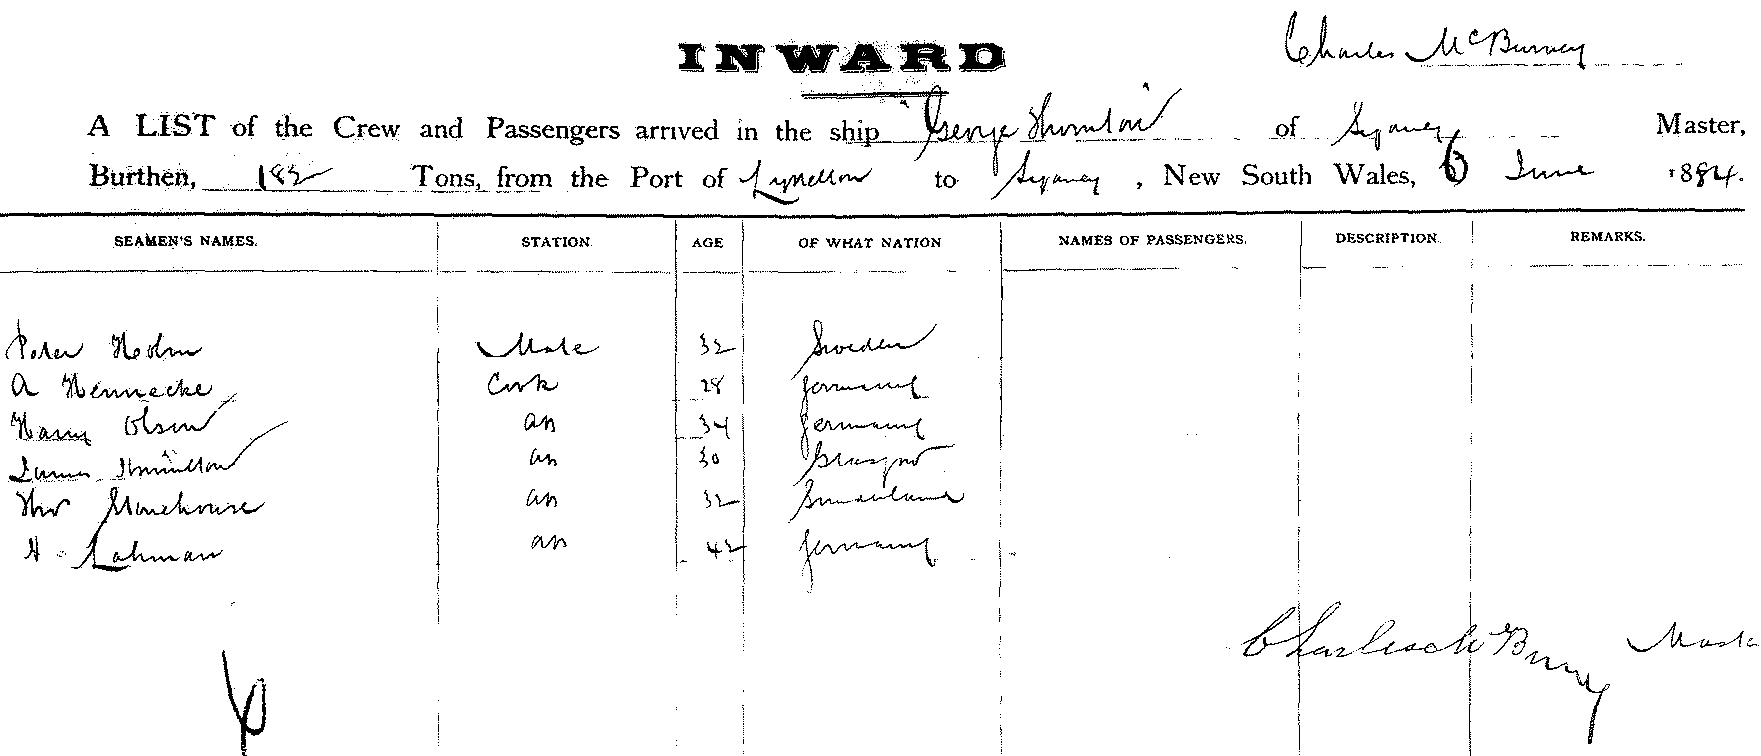 INWARD
Charles McBurney
A LIST of the Crew and Passengers arrived in the ship "George Thornton" of Sydney Master,
Burthen, 182 Tons, from the Port of Lyttelton to Sydney, New South Wales, 6 June 1884.
SEAMEN'S NAMES. STATION. AGE OF WHAT NATION NAMES OF PASSENGERS. DESCRIPTION. REMARKS.
Peter Holm Mate 32 Sweden
A Hennecke Cook 28 Germany
Harry Olsen AB 34 Germany
James Hamilton AB 30 Glasgow
Stonehouse AB 32 Sunderland
H Lahman AB 42 Germany
Charles McBurney Master